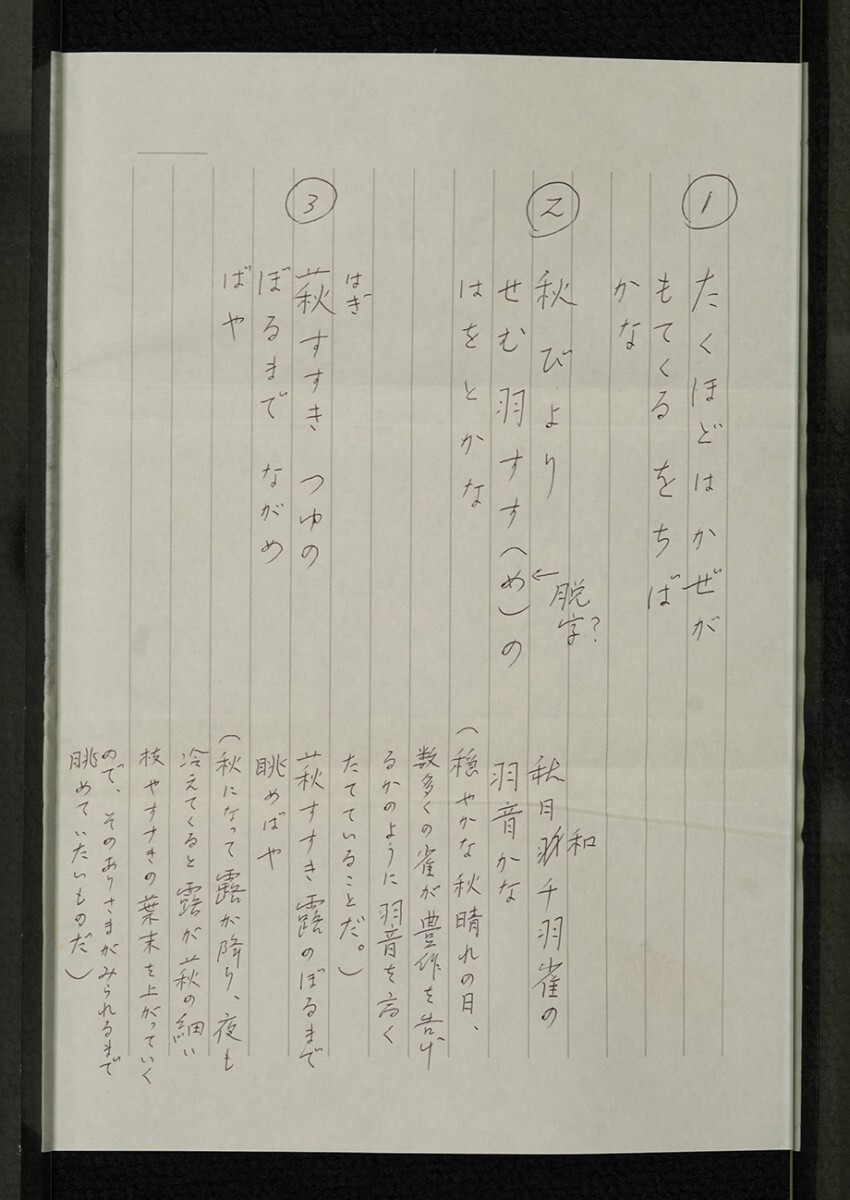 ①
たくほどはかぜが
もてくるをちば
かな
②
秋びより
せむ羽すす(め)の
←脱字?
はをとかな
はぎ
③
萩すすき つゆの
ぼるまで ながめ
ばや
秋日和千羽雀の
羽音かな
(穏やかな秋晴れの日、
数多くの雀が豊作を告げ
るかのように羽音を高く
たてていることだ。)
萩すすき露のぼるまで
眺めばや
(秋になって露が降り、夜も
冷えてくると露が萩の細い
枝やすすきの葉末を上がっていく
ので、そのありさまがみられるまで
眺めていたいものだ)